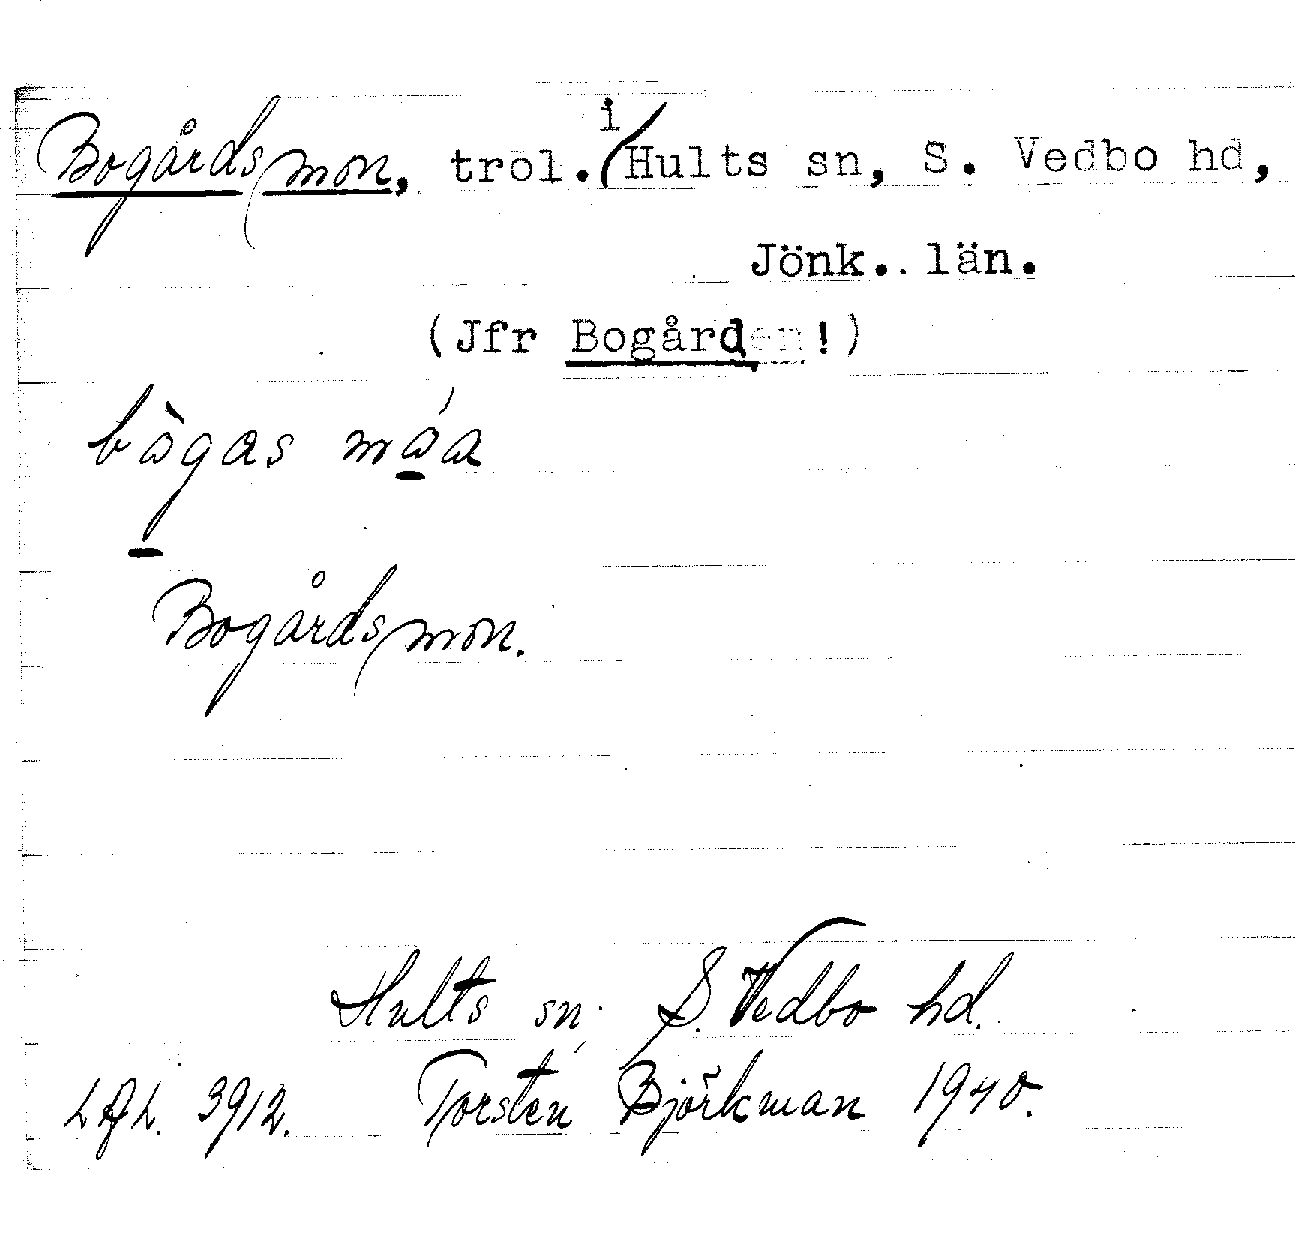 Bogårdsmon, trol. i Hults sn, S. Vedbo hd,
Jönk. län.
(Jfr Bogården!)
bògas måa
Bogårdsmon.
Hults sn, S. Vedbo hd.
3912. Torsten Björkman 1940.